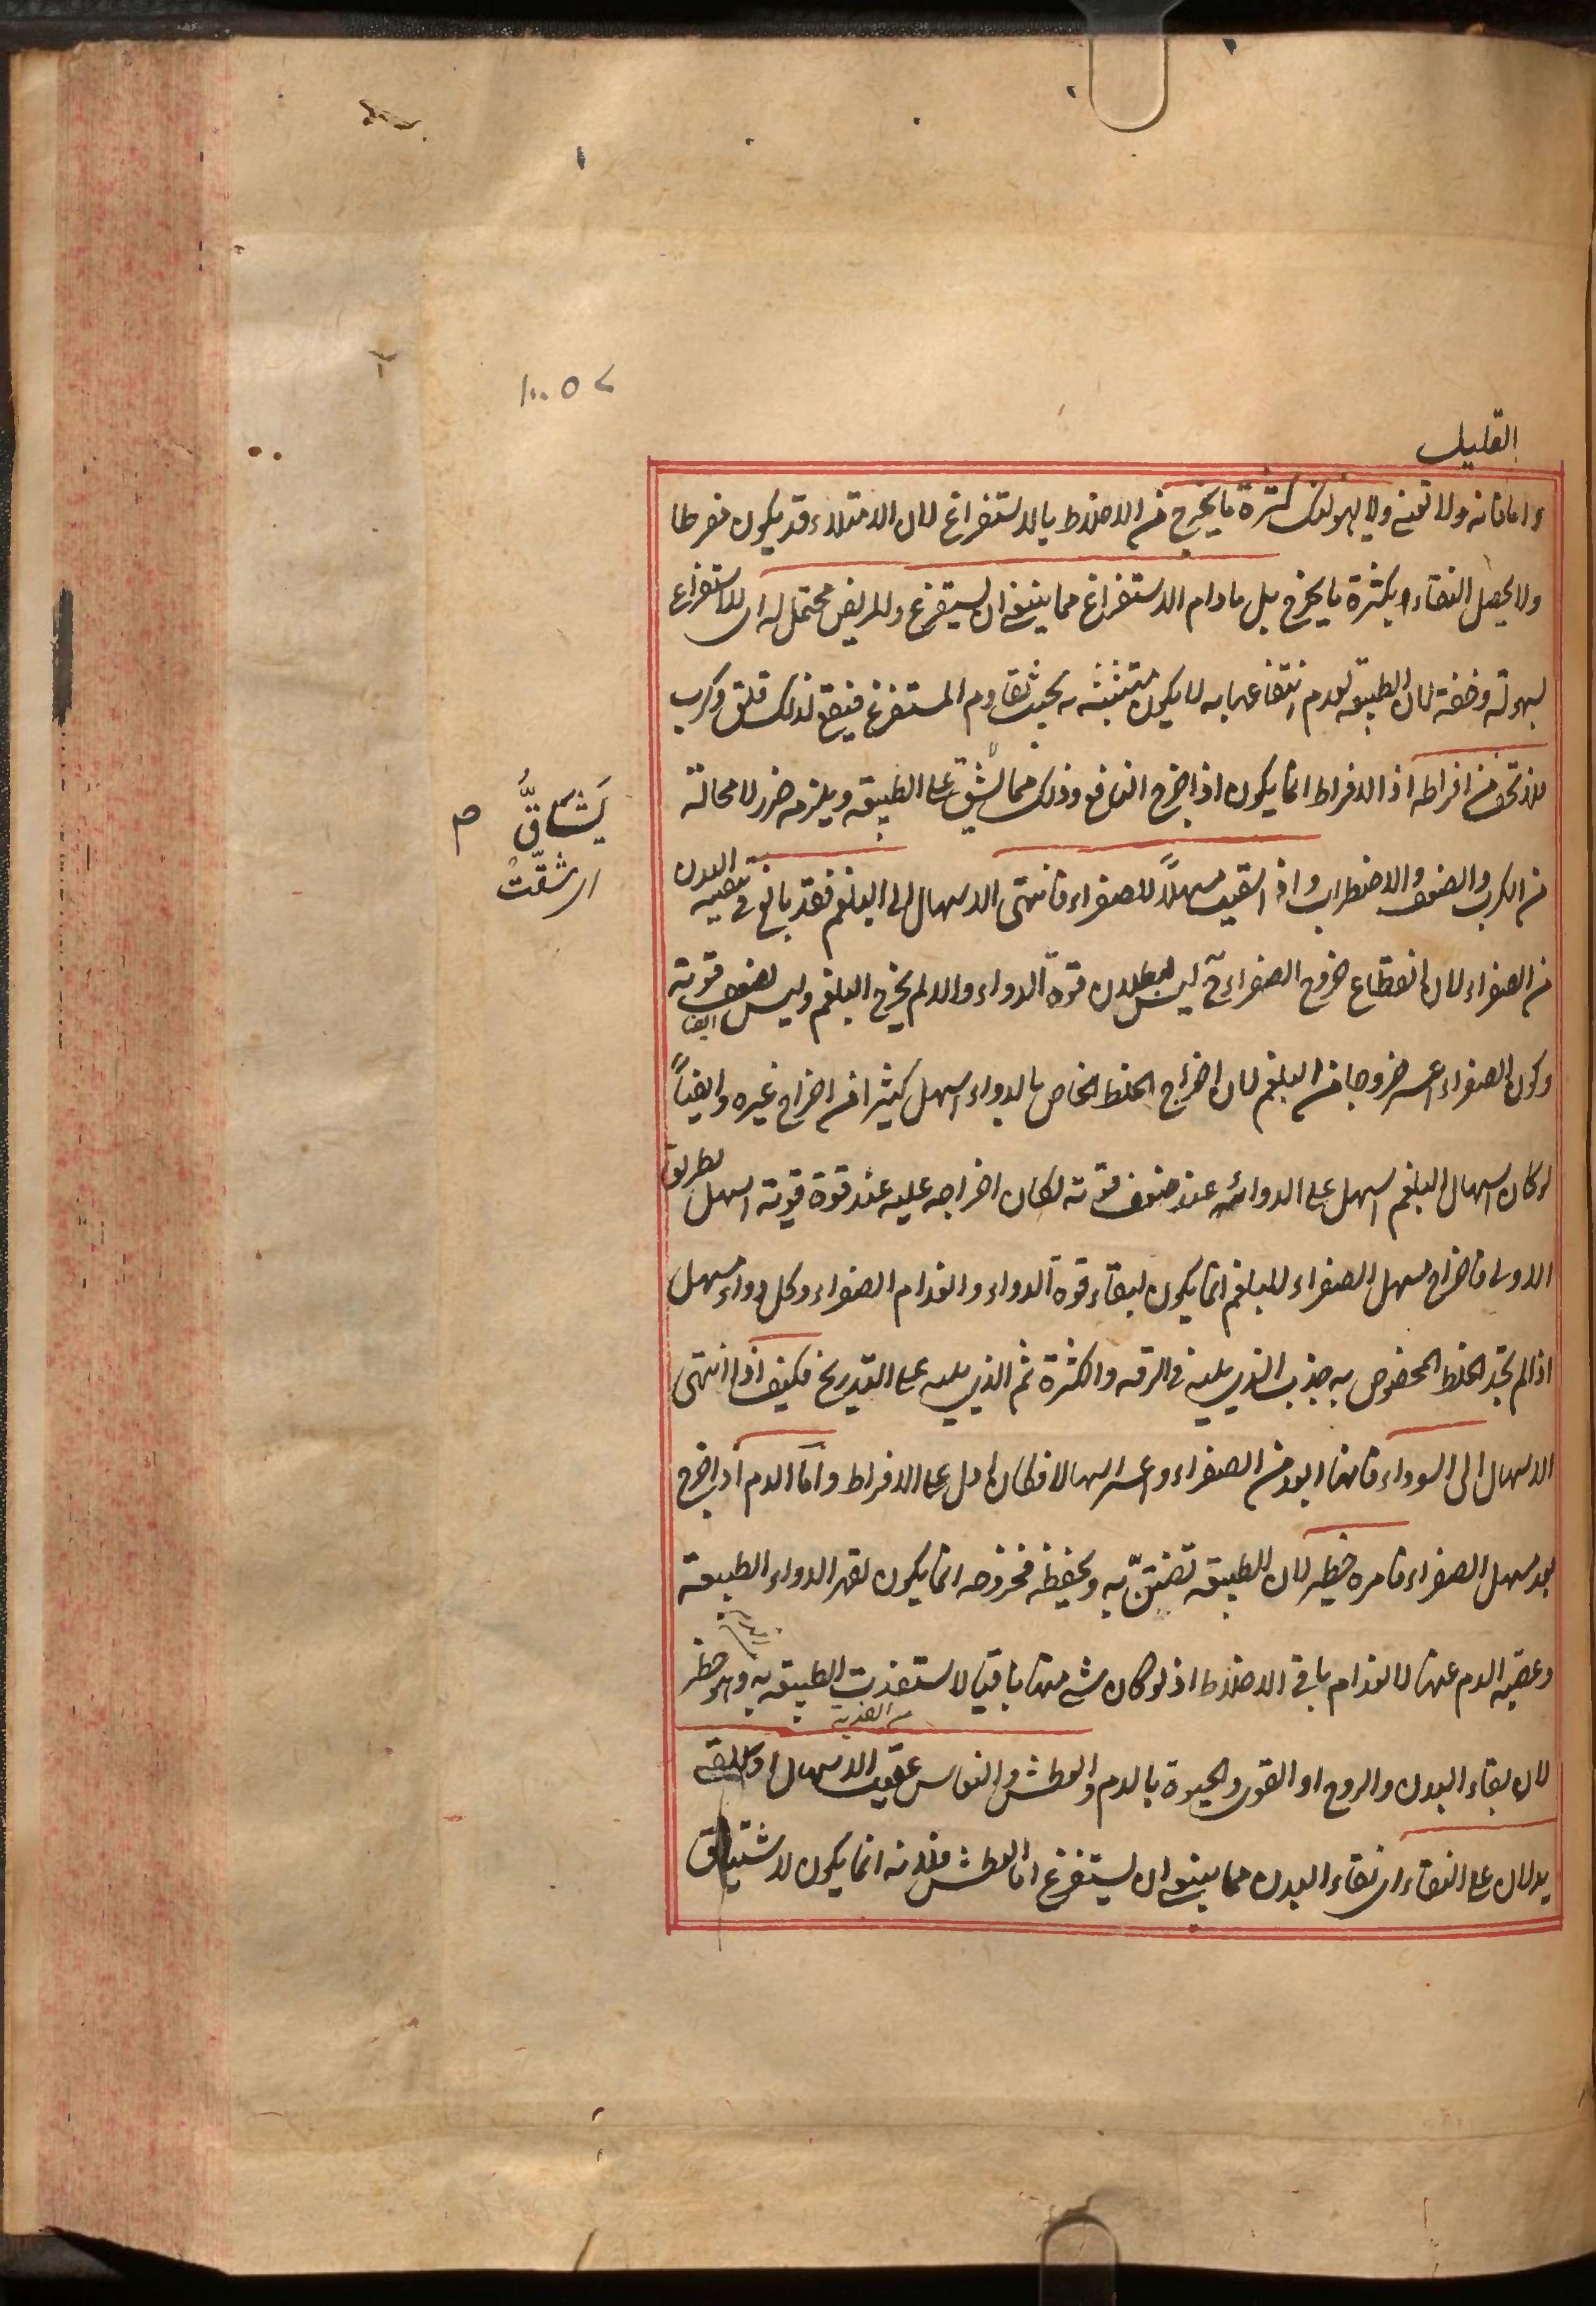 القليل
ولا يهولنك كثرة ما يخرج من الاخلاط بالاستفراغ لان الامتلاء قد يكون مفرطا
ولا يحصل النقاء الا بكثرة ما يخرج بل ما دام الاستفراغ مما ينبغي ان يستفرغ والمريض محتمل له اى للاستفراغ
بسهولة وخفة لان الطبيعة لعدم انتفاعها به لا يكون متشبثة به بحيث تقاوم المستفرغ فيقع لذلك قلق وكرب
فلا تخف من افراطه اذ الافراط انما يكون اذا اخرج النافع وذلك مما يشق على الطبيعة ويلزمه ضرر لا محالة
من الكرب والضعف والاضطراب واذا سقيت مسهلاً للصفراء فانتهى الاسهال الى البلغم فقد بالغ فى تنقية البدن
من الصفراء لان انقطاع خروج الصفراء ح ليس لبطلان قوة الدواء والا لم يخرج البلغم وليس ايضا لضعف قوته
وكون الصفراء اعسر خروجا من البلغم لان اخراج الخلط الخاص بالدواء اسهل كثيرا من اخراج غيره وايضاً
لو كان اسهال البلغم اسهل على الدواء عند ضعف قوته لكان اخراجه عليه عند قوة قوته اسهل بطريق
الاولى فاخراج مسهل الصفراء للبلغم انما يكون لبقاء قوة الدواء وانعدام الصفراء وكل دواء مسهل
اذا لم يجد الخلط المخصوص به جذب الذى يليه فى الرقة والكثرة ثم الذى يليه على التدريج فكيف اذا انتهى
الاسهال الى السوداء فانها ابعد من الصفراء واعسر اسهالا فكان ادل على الافراط واما الدم اذا خرج
بعد مسهل الصفراء فامره خطير لان الطبيعة تضنّ به وتحفظه فخروجه انما يكون لقهر الدواء الطبيعة
وغصبه الدم عنها لانعدام باقى الاخلاط اذ لو كان شئ منها باقيا لاستفذت الطبيعة به وهو خطر
لان بقاء البدن والروح او القوى والحيوة بالدم والعطش والنعاس عقيب الاسهال او القئ
يدلان على النقاء اى نقاء البدن مما ينبغى ان يستفرغ اما العطش فلانه انما يكون لاشتياق
يَشاقُّ م
اى شقّتْ